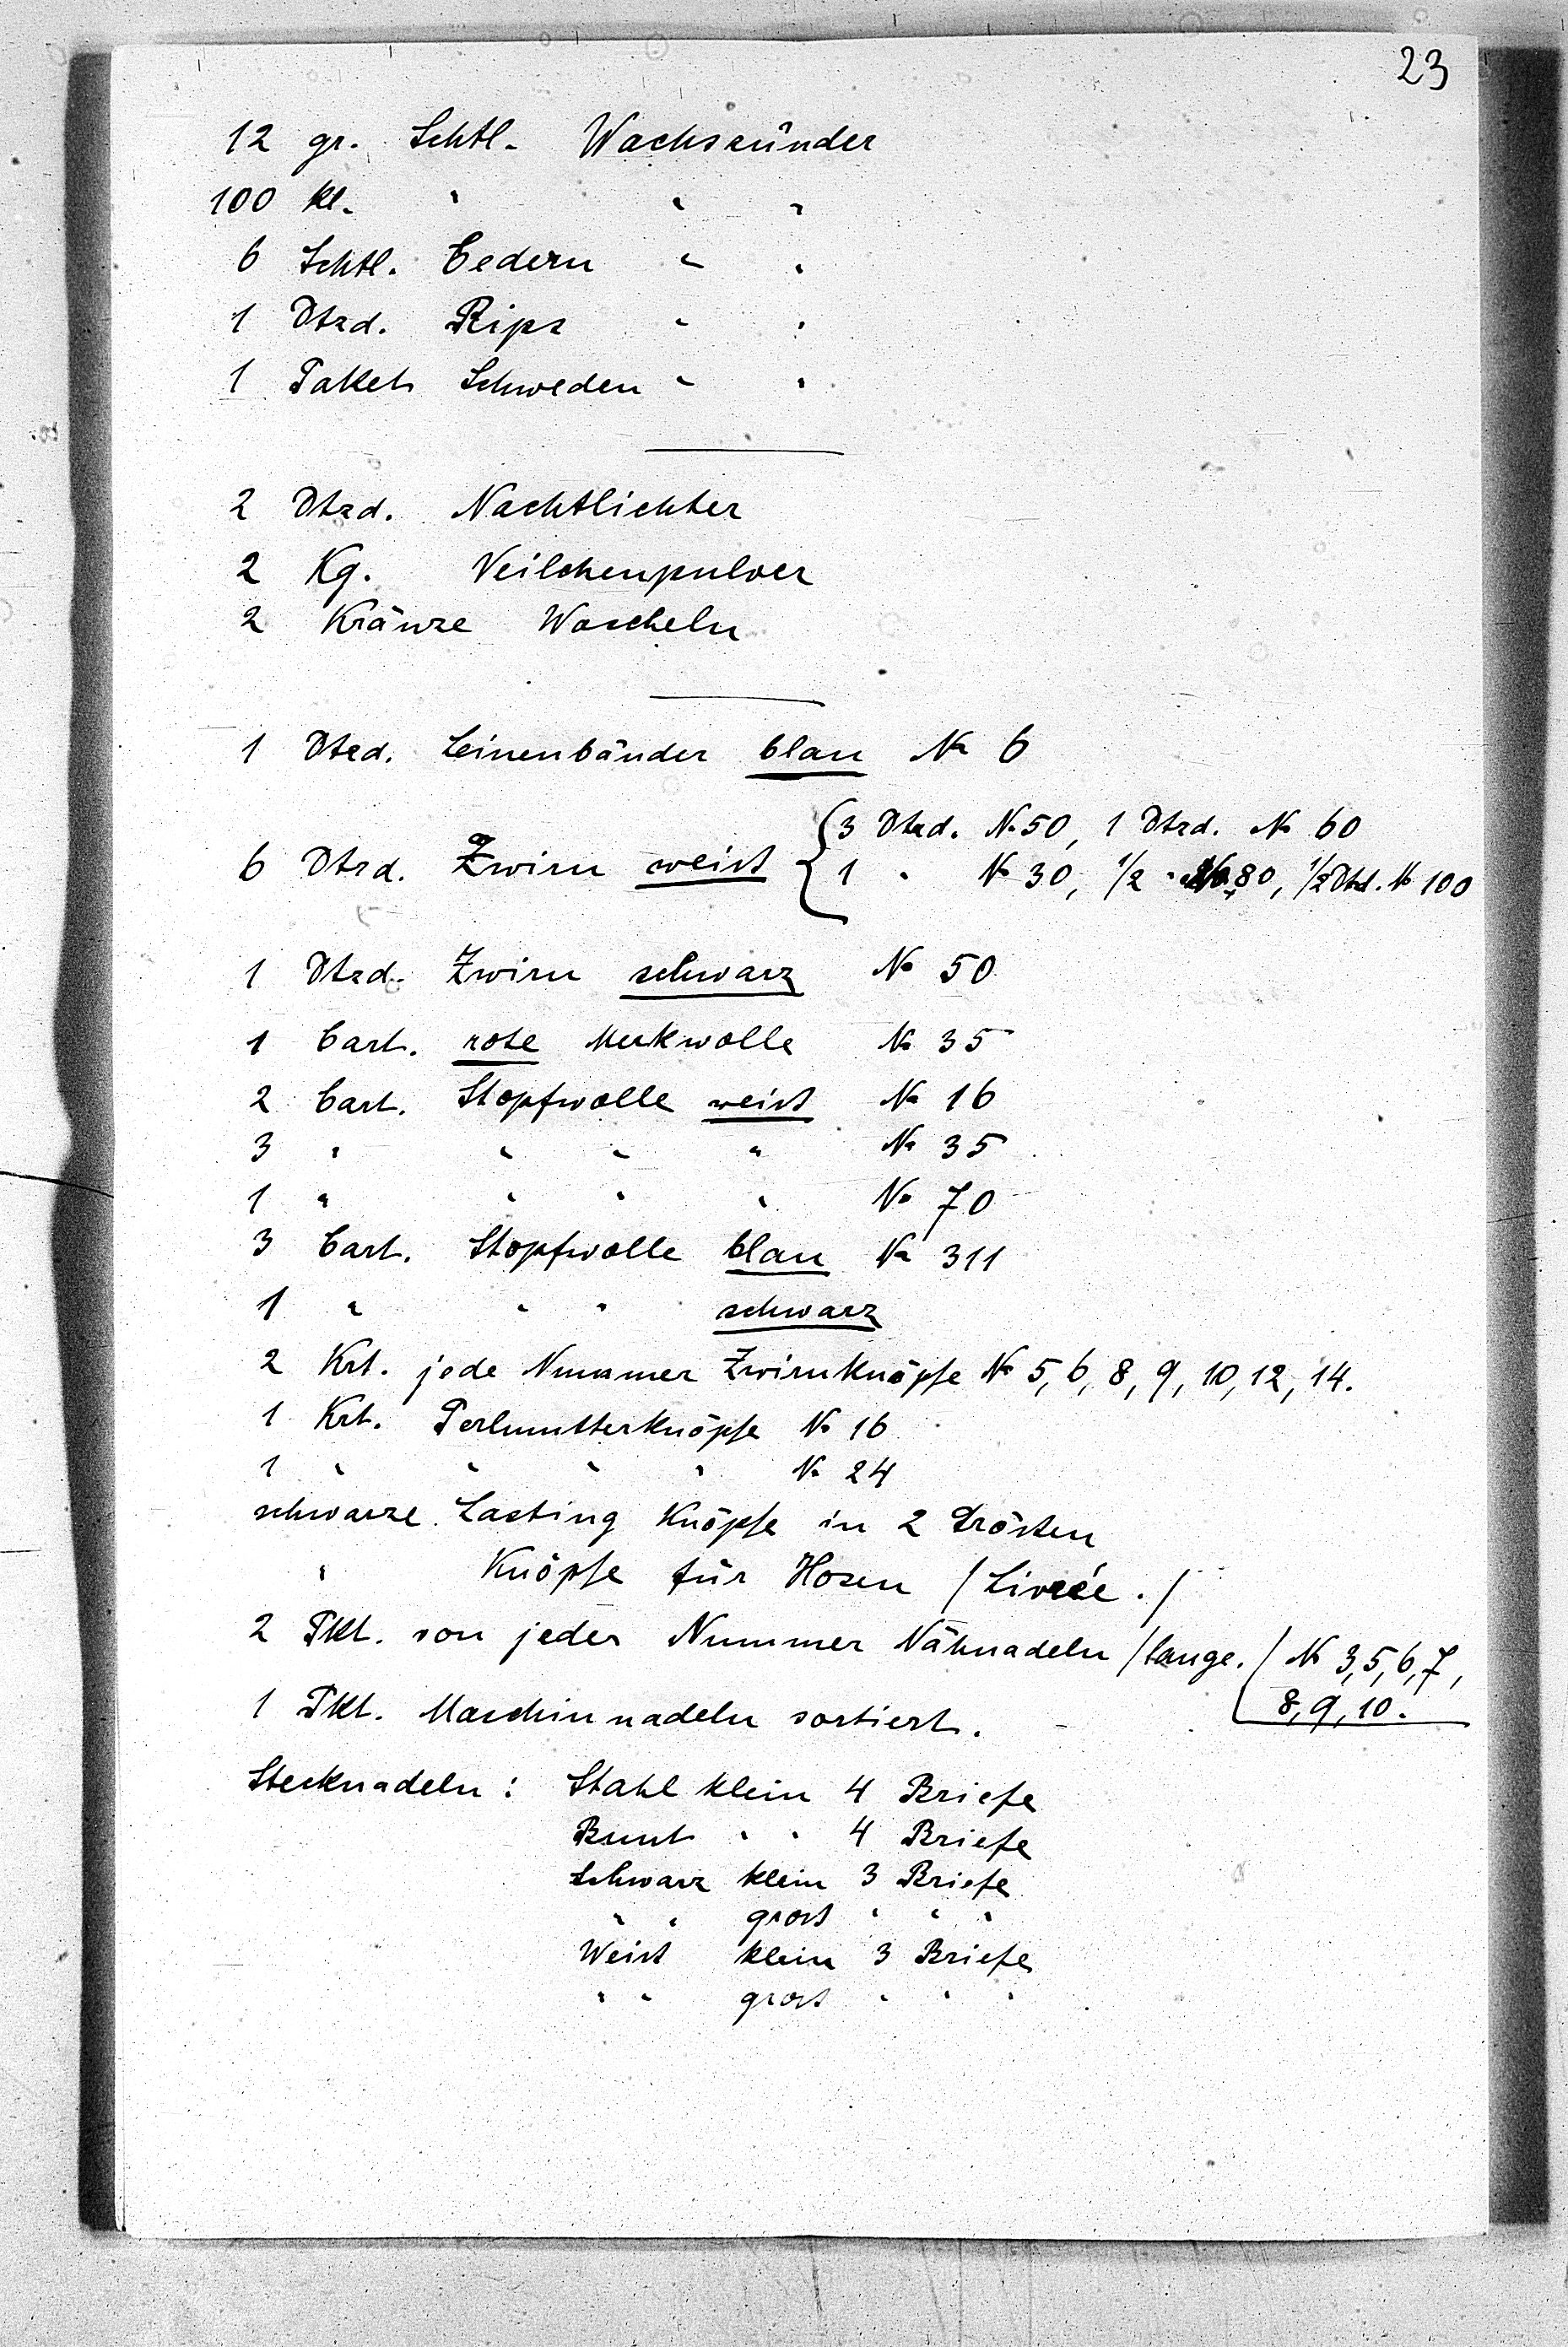 23
12 gr. Schtl. Wachszünder
100 kl. " " "
6 Schtl. Cedern " "
1 Dtzd. Rips " "
1 Paket Schweden " "
2 Dtzd. Nachtlichter
2 Kg. Veilchenpulver
2 Kränze Wascheln
1 Dtzd. Leinenbänder blau No 6
3 Dtzd. No 50, 1 Dtzd. No 60
6 Dtzd. Zwirn weiss
1 " No 30, 1/2 " No 80, 1/2 Dtzd. No 100
1 Dtzd. Zwirn schwarz No 50
1 Cart. rote Merkwolle No 35
2 Cart. Stopfwolle weiss No 16
3 " " " " No 35
1 " " " " No 70
3 Cart. Stopfwolle blau No 311
1 " " " schwarz
2 Krt. jede Nummer Zwirnknöpfe No 5, 6, 8, 9, 10, 12, 14.
1 Krt. Perlmutterknöpfe No 16
1 " " " " No 24
schwarze Lasting Knöpfe in 2 Grössen
" Knöpfe für Hosen /Livrée./
2 Pkt. von jeder Nummer Nähnadeln /lange./ No 3, 5, 6, 7,
8, 9, 10.
1 Pkt. Maschinnadeln sortiert.
Stecknadeln: Stahl klein 4 Briefe
Bunt " " 4 Briefe
Schwarz klein 3 Briefe
" " gross " " "
Weiss klein 3 Briefe
" " gross " " "